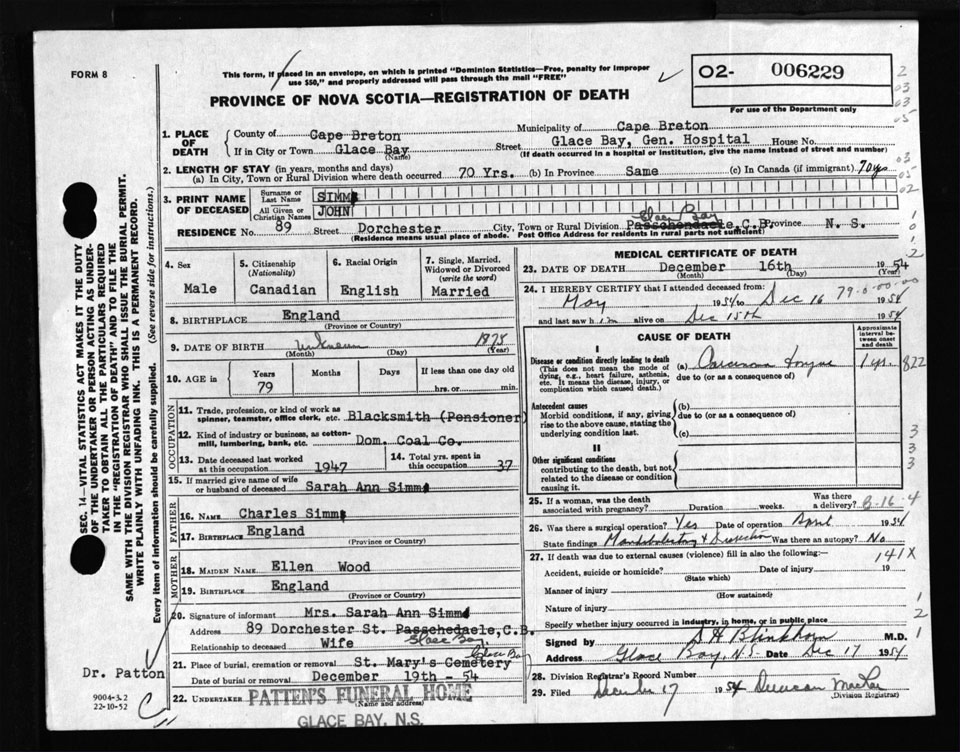 FORM 8
This form, if placed in an envelope, on which is printed "Dominion Statistics—Free, penalty for improper
use $50," and properly addressed will pass through the mail "FREE"
02- 006229
For use of the Department only
PROVINCE OF NOVA SCOTIA—REGISTRATION OF DEATH
1. PLACE OF DEATH
County of Cape Breton Municipality of Cape Breton
If in City or Town Glace Bay Street Glace Bay, Gen. Hospital House No.
(Name) (If death occurred in a hospital or institution, give the name instead of street and number)
2. LENGTH OF STAY (in years, months and days)
(a) In City, Town or Rural Division where death occurred 70 Yrs. (b) In Province Same (c) In Canada (if immigrant) 70 yrs
3. PRINT NAME OF DECEASED
Surname or Last Name SIMMS
All Given or Christian Names JOHN
RESIDENCE No. 89 Street Dorchester City, Town or Rural Division Passchendaele, C.B. Glace Bay Province N. S.
(Residence means usual place of abode. Post Office Address for residents in rural parts not sufficient)
4. Sex Male
5. Citizenship (Nationality) Canadian
6. Racial Origin English
7. Single, Married, Widowed or Divorced (write the word) Married
8. BIRTHPLACE England
(Province or Country)
9. DATE OF BIRTH unknown 1875
(Month) (Day) (Year)
10. AGE in Years 79 Months Days If less than one day old hrs. or min.
OCCUPATION
11. Trade, profession, or kind of work as spinner, teamster, office clerk, etc. Blacksmith (Pensioner)
12. Kind of industry or business, as cotton-mill, lumbering, bank, etc. Dom. Coal Co.
13. Date deceased last worked at this occupation 1947
14. Total yrs. spent in this occupation 37
15. If married give name of wife or husband of deceased Sarah Ann Simms
FATHER
16. Name Charles Simms
17. Birthplace England
(Province or Country)
MOTHER
18. Maiden Name Ellen Wood
19. Birthplace England
(Province or Country)
20. Signature of informant Mrs. Sarah Ann Simms
Address 89 Dorchester St. Passchedaele, C.B.
Glace Bay
Relationship to deceased Wife
21. Place of burial, cremation or removal St. Mary's Cemetery Glace Bay
Date of burial or removal December 19th - 54
22. Undertaker PATTEN'S FUNERAL HOME
(Name and address)
GLACE BAY, N.S.
MEDICAL CERTIFICATE OF DEATH
23. DATE OF DEATH December 16th 1954
(Month) (Day) (Year)
24. I HEREBY CERTIFY that I attended deceased from: 79-0-00-00
May 1954 to Dec 16 1954
and last saw him alive on Dec 15th 1954
CAUSE OF DEATH
Approximate interval between onset and death
I
Disease or condition directly leading to death
(This does not mean the mode of dying, e.g., heart failure, asthenia, etc. It means the disease, injury, or complication which caused death.)
(a) Carcinoma tongue 1 yr.
due to (or as a consequence of)
Antecedent causes
Morbid conditions, if any, giving rise to the above cause, stating the underlying condition last.
(b)
due to (or as a consequence of)
(c)
II
Other significant conditions
contributing to the death, but not related to the disease or condition causing it.
25. If a woman, was the death associated with pregnancy? Duration weeks. Was there a delivery?
26. Was there a surgical operation? Yes Date of operation April 1954
State findings Was there an autopsy? No
27. If death was due to external causes (violence) fill in also the following:— 141X
Accident, suicide or homicide? Date of injury 19
(State which)
Manner of injury
(How sustained)
Nature of injury
Specify whether injury occurred in industry, in home, or in public place
Signed by S H Blinkhorn M.D.
Address Glace Bay, N.S. Date Dec 17 1954
28. Division Registrar's Record Number
29. Filed December 17 1954 Duncan MacRae
(Division Registrar)
SEC. 14—VITAL STATISTICS ACT MAKES IT THE DUTY
OF THE UNDERTAKER OR PERSON ACTING AS UNDER-
TAKER TO OBTAIN ALL THE PARTICULARS REQUIRED
IN THE "REGISTRATION OF DEATH" AND TO FILE THE
SAME WITH THE DIVISION REGISTRAR WHO SHALL ISSUE THE BURIAL PERMIT.
WRITE PLAINLY WITH UNFADING INK. THIS IS A PERMANENT RECORD.
Every item of information should be carefully supplied. (See reverse side for instructions.)
Dr. Patton
9004-3.2
22-10-52